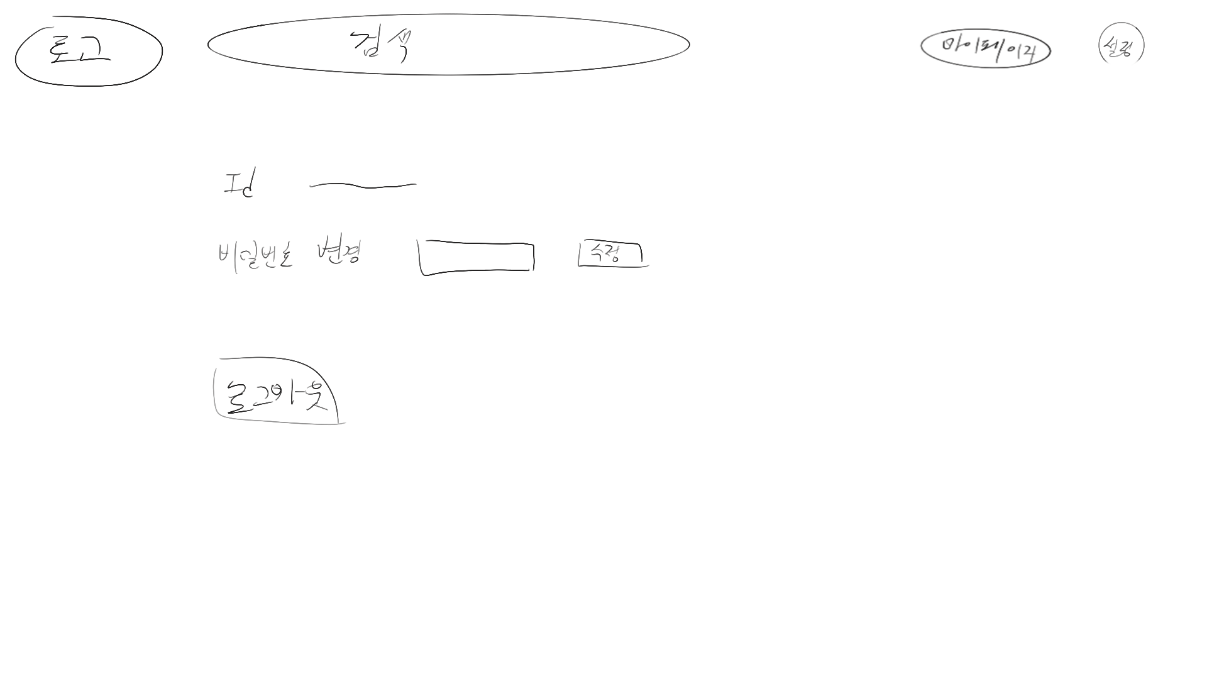 로고 검색 마이페이지 설정
Id
비밀번호 변경 수정
로그아웃